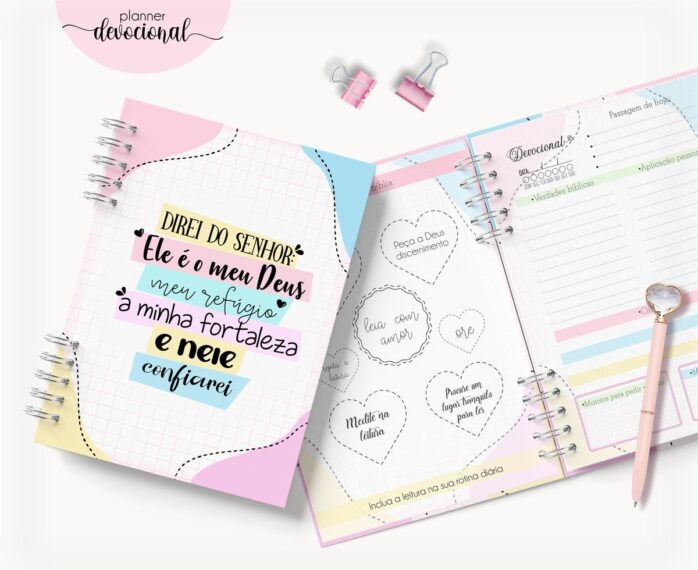 planner
devocional
DIREI DO SENHOR:
Ele é o meu Deus
meu refúgio
a minha fortaleza
e nele
confiarei
bíblia
Peça a Deus
discernimento
leia com
amor
ore
leitura
Medite na
leitura
Procure um
lugar tranquilo
para ler
Inclua a leitura na sua rotina diária
Devocional
DATA:
Passagem de hoje
•Verdades bíblicas
•Aplicação pessoal
•Motivos para pedir